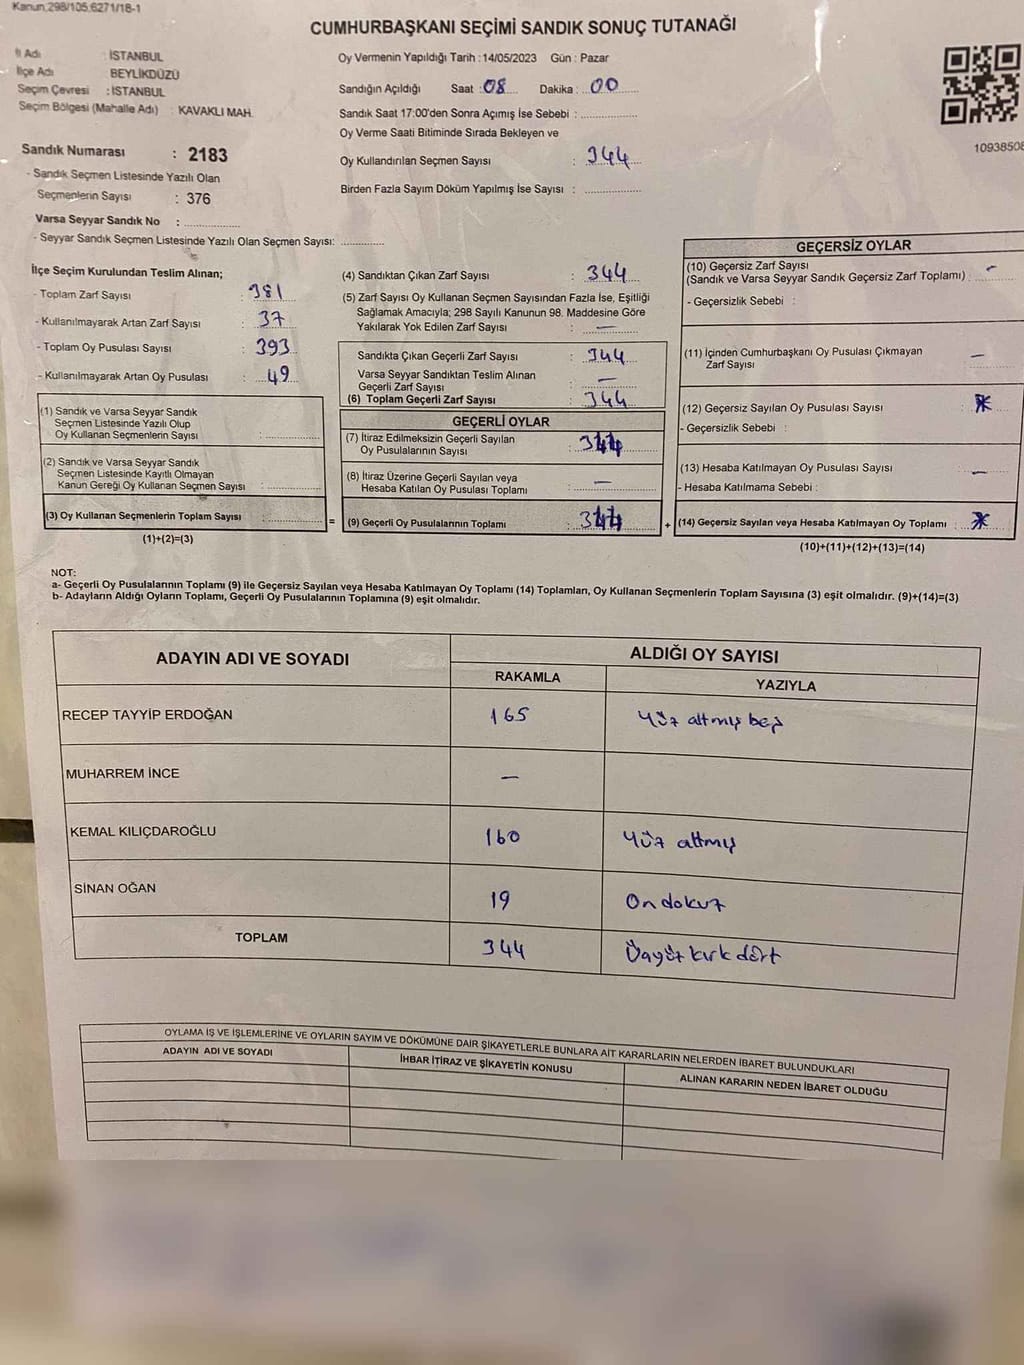 Kanun,298/105;6271/18-1
CUMHURBAŞKANI SEÇİMİ SANDIK SONUÇ TUTANAĞI
İl Adı : İSTANBUL
İlçe Adı : BEYLİKDÜZÜ
Seçim Çevresi : İSTANBUL
Seçim Bölgesi (Mahalle Adı) : KAVAKLI MAH.
Sandık Numarası : 2183
- Sandık Seçmen Listesinde Yazılı Olan
Seçmenlerin Sayısı : 376
Varsa Seyyar Sandık No : ..............
- Seyyar Sandık Seçmen Listesinde Yazılı Olan Seçmen Sayısı: ............
Oy Vermenin Yapıldığı Tarih : 14/05/2023 Gün : Pazar
Sandığın Açıldığı Saat : 08 Dakika : 00
Sandık Saat 17:00'den Sonra Açımış İse Sebebi : ..............
Oy Verme Saati Bitiminde Sırada Bekleyen ve
Oy Kullandırılan Seçmen Sayısı : 344
Birden Fazla Sayım Döküm Yapılmış İse Sayısı : ..............
10938508
İlçe Seçim Kurulundan Teslim Alınan;
- Toplam Zarf Sayısı : 381
- Kullanılmayarak Artan Zarf Sayısı : 37
- Toplam Oy Pusulası Sayısı : 393
- Kullanılmayarak Artan Oy Pusulası : 49
(1) Sandık ve Varsa Seyyar Sandık
Seçmen Listesinde Yazılı Olup
Oy Kullanan Seçmenlerin Sayısı : ..............
(2) Sandık ve Varsa Seyyar Sandık
Seçmen Listesinde Kayıtlı Olmayan
Kanun Gereği Oy Kullanan Seçmen Sayısı : ..............
(3) Oy Kullanan Seçmenlerin Toplam Sayısı : ..............
(1)+(2)=(3)
(4) Sandıktan Çıkan Zarf Sayısı : 344
(5) Zarf Sayısı Oy Kullanan Seçmen Sayısından Fazla İse, Eşitliği
Sağlamak Amacıyla; 298 Sayılı Kanunun 98. Maddesine Göre
Yakılarak Yok Edilen Zarf Sayısı : —
Sandıkta Çıkan Geçerli Zarf Sayısı : 344
Varsa Seyyar Sandıktan Teslim Alınan
Geçerli Zarf Sayısı : —
(6) Toplam Geçerli Zarf Sayısı : 344
GEÇERLİ OYLAR
(7) İtiraz Edilmeksizin Geçerli Sayılan
Oy Pusulalarının Sayısı : 344
(8) İtiraz Üzerine Geçerli Sayılan veya
Hesaba Katılan Oy Pusulası Toplamı : —
= (9) Geçerli Oy Pusulalarının Toplamı : 344 +
GEÇERSİZ OYLAR
(10) Geçersiz Zarf Sayısı
(Sandık ve Varsa Seyyar Sandık Geçersiz Zarf Toplamı) : -
- Geçersizlik Sebebi :
(11) İçinden Cumhurbaşkanı Oy Pusulası Çıkmayan
Zarf Sayısı : —
(12) Geçersiz Sayılan Oy Pusulası Sayısı :
- Geçersizlik Sebebi :
(13) Hesaba Katılmayan Oy Pusulası Sayısı : —
- Hesaba Katılmama Sebebi :
(14) Geçersiz Sayılan veya Hesaba Katılmayan Oy Toplamı :
(10)+(11)+(12)+(13)=(14)
NOT:
a- Geçerli Oy Pusulalarının Toplamı (9) ile Geçersiz Sayılan veya Hesaba Katılmayan Oy Toplamı (14) Toplamları, Oy Kullanan Seçmenlerin Toplam Sayısına (3) eşit olmalıdır. (9)+(14)=(3)
b- Adayların Aldığı Oyların Toplamı, Geçerli Oy Pusulalarının Toplamına (9) eşit olmalıdır.
ADAYIN ADI VE SOYADI ALDIĞI OY SAYISI
RAKAMLA YAZIYLA
RECEP TAYYİP ERDOĞAN 165 Yüz altmış beş
MUHARREM İNCE —
KEMAL KILIÇDAROĞLU 160 Yüz altmış
SİNAN OĞAN 19 On dokuz
TOPLAM 344 Üçyüz kırk dört
OYLAMA İŞ VE İŞLEMLERİNE VE OYLARIN SAYIM VE DÖKÜMÜNE DAİR ŞİKAYETLERLE BUNLARA AİT KARARLARIN NELERDEN İBARET BULUNDUKLARI
ADAYIN ADI VE SOYADI İHBAR İTİRAZ VE ŞİKAYETİN KONUSU ALINAN KARARIN NEDEN İBARET OLDUĞU